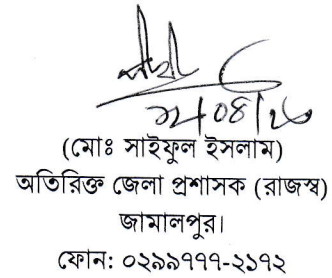 (মোঃ সাইফুল ইসলাম)
অতিরিক্ত জেলা প্রশাসক (রাজস্ব)
জামালপুর।
ফোন: ০২৯৯৭৭৭-২১৭২